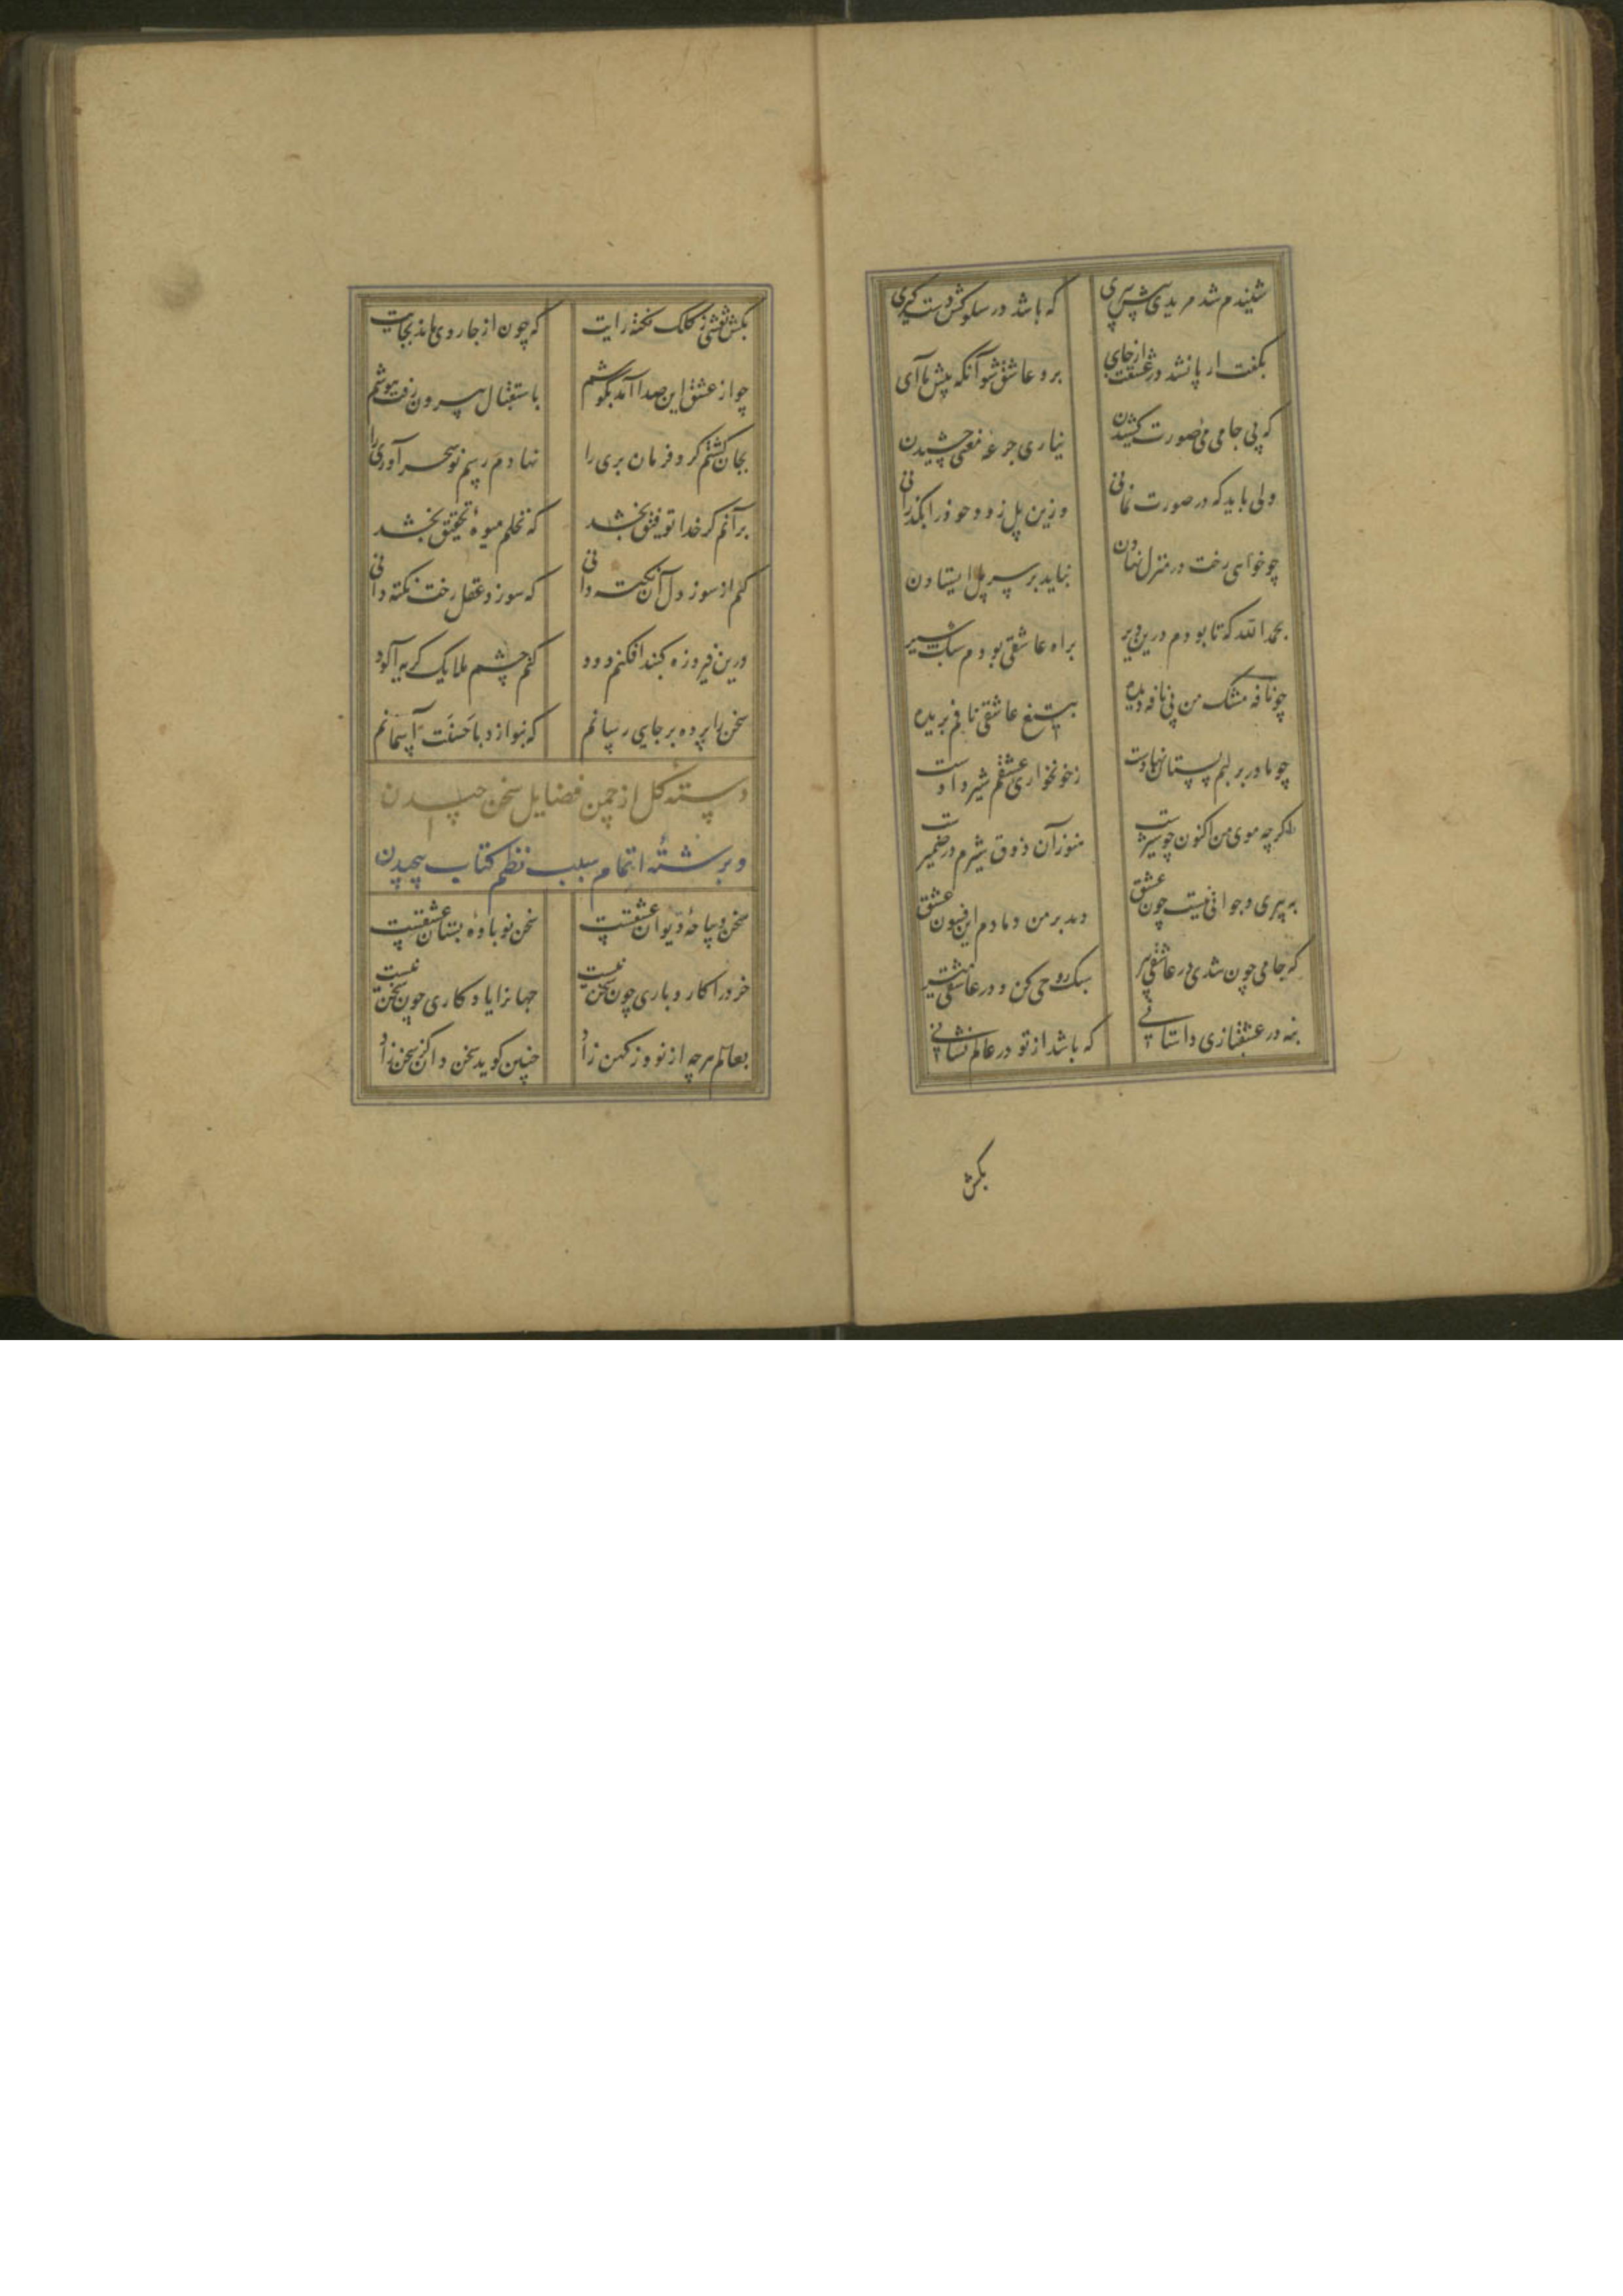 شنیدم شد مریدی پیش پیری که باشد در سلوکش دست گیری
بگفت ار پا نشد در عشقت از جای برو عاشق شو آنگه پیش ما آی
که بی جام می صورت کشیدن نیاری جرعه معنی چشیدن
ولی باید که در صورت نمانی وزین پل زود خود را بگذرانی
چو خواهی رخت در منزل نهادن نباید بر سر پل ایستادن
بحمد الله که تا بودم درین دیر براه عاشقی بودم سبک سیر
چو نافه مشک من بی نافه دیده بتیغ عاشقی نافم بریده
چو مادر بر لبم پستان نهادست زخونخواری عشقم شیر دادست
اگر چه موی من اکنون چو شیرست هنوز آن ذوق شیرم در ضمیرست
به پیری و جوانی نیست چون عشق دمد بر من دمادم این فسون عشق
که جامی چون شدی در عاشقی پیر سبک روحی کن و در عاشقی میر
بنه در عشقبازی داستانی که باشد از تو در عالم نشانی
بکش
بکش نقشی ز کلک نکته رایت که چون از جا روی ماند بجایت
چو از عشق این صدا آمد بگوشم باستقبال بیرون رفت هوشم
بجان گشتم گرو فرمان بری را نهادم رسم نو سحر آوری را
برآنم گر خدا توفیق بخشد که نخلم میوه تحقیق بخشد
کنم از سوز دل آن نکته دانی که سوزد عقل رخت نکته دانی
درین فیروزه گنبد افکنم دود کنم چشم ملایک گریه آلود
سخن را پرده بر جایی رسانم که بنوازد باحسنت آسمانم
دسته گل از چمن فضایل سخن چیدن
و بر رشته اتمام سبب نظم کتاب پیچیدن
سخن دیباچه دیوان عشقست سخن نوباوه بستان عشقست
خرد را کار و باری چون سخن نیست جهانرا یادگاری چون سخن نیست
بعالم هر چه از نو وز کهن زاد چنین گوید سخن دان کز سخن زاد